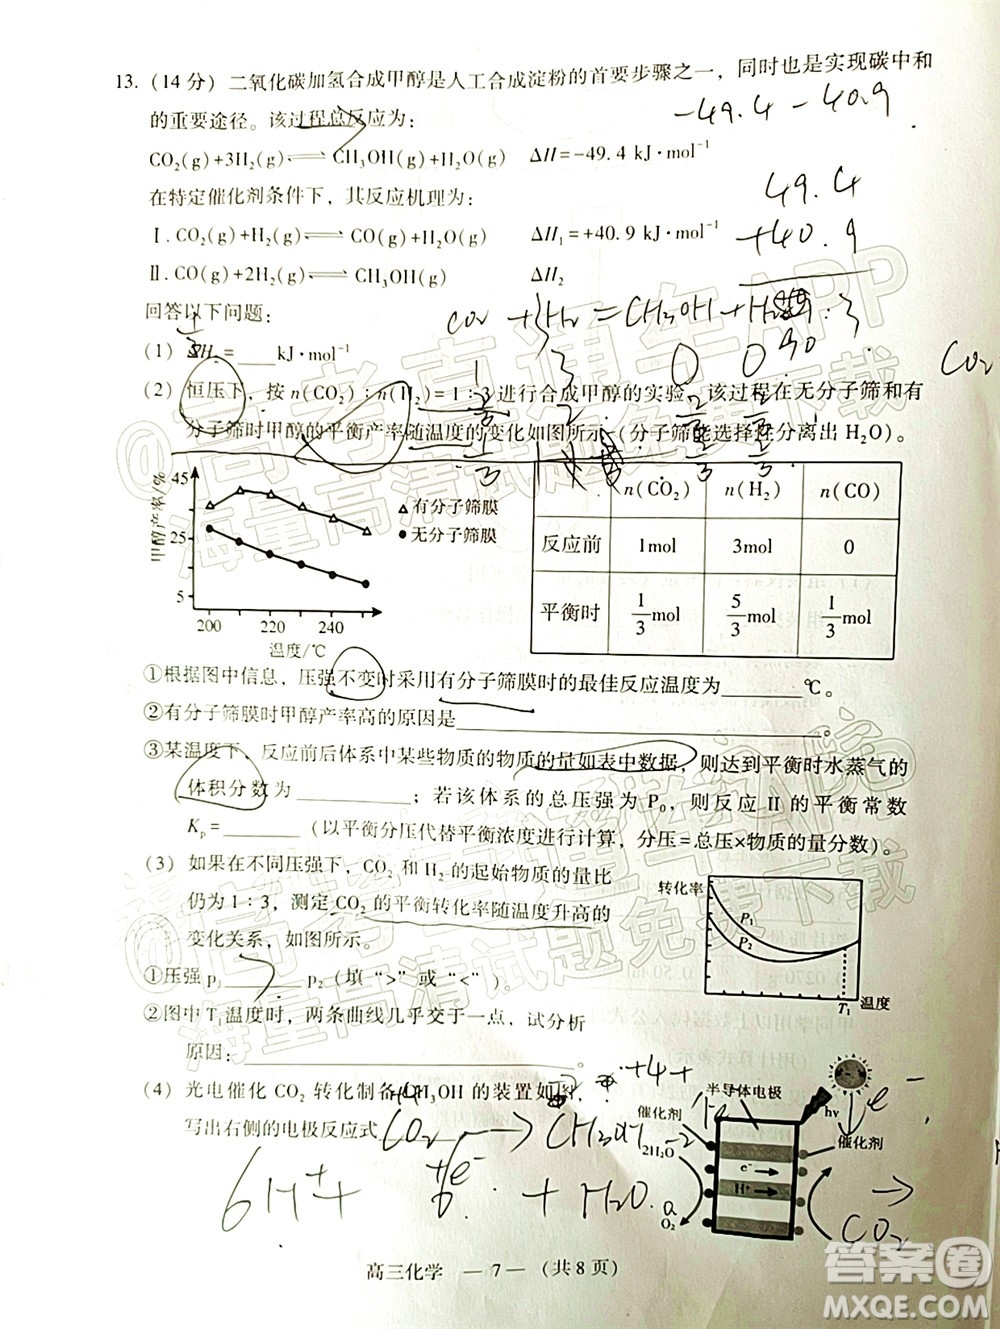 13. (14 分) 二氧化碳加氢合成甲醇是人工合成淀粉的首要步骤之一，同时也是实现碳中和
的重要途径。该过程总反应为：
-49.4 - 40.9
CO₂(g)+3H₂(g)⇌CH₃OH(g)+H₂O(g) ΔH=−49.4 kJ·mol⁻¹
在特定催化剂条件下，其反应机理为：
49.4
Ⅰ. CO₂(g)+H₂(g)⇌CO(g)+H₂O(g) ΔH₁=+40.9 kJ·mol⁻¹
+40.9
Ⅱ. CO(g)+2H₂(g)⇌CH₃OH(g) ΔH₂
回答以下问题：
CO2 + 3H2 = CH3OH + H2
90.3
(1) ΔH₂=____kJ·mol⁻¹
1 3 0 0
CO2
(2) 恒压下，按 n(CO₂)：n(H₂)=1：3进行合成甲醇的实验，该过程在无分子筛和有
分子筛时甲醇的平衡产率随温度的变化如图所示 (分子筛能选择性分离出 H₂O)。
甲醇产率/%
45
25
5
200 220 240
温度/℃
有分子筛膜
无分子筛膜
n(CO₂) n(H₂) n(CO)
反应前 1mol 3mol 0
平衡时 1/3 mol 5/3 mol 1/3 mol
①根据图中信息，压强不变时采用有分子筛膜时的最佳反应温度为________℃。
②有分子筛膜时甲醇产率高的原因是________。
③某温度下，反应前后体系中某些物质的物质的量如表中数据，则达到平衡时水蒸气的
体积分数为________；若该体系的总压强为 P₀，则反应 II 的平衡常数
Kₚ=______ (以平衡分压代替平衡浓度进行计算，分压=总压×物质的量分数)。
(3) 如果在不同压强下，CO₂ 和 H₂ 的起始物质的量比
仍为 1：3，测定 CO₂ 的平衡转化率随温度升高的
变化关系，如图所示。
转化率
P₁
P₂
T₁
温度
①压强 p₁____ p₂ (填 “>” 或 “<”)
>
②图中 T₁ 温度时，两条曲线几乎交于一点，试分析
原因：________。
(4) 光电催化 CO₂ 转化制备 CH₃OH 的装置如图，
写出右侧的电极反应式
CO2 → CH3OH
6H+ + 6e- + H2O
+4
-2
半导体电极
催化剂
hν
催化剂
2H₂O
e⁻
H⁺
O₂
e-
CO2
高三化学 — 7 — (共 8 页)
@高考直通车APP
海量高清试题免费下载
@高考直通车APP
海量高清试题免费下载
答案圈
MXQE.COM